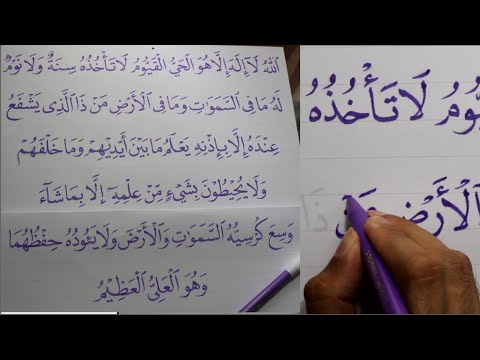 اَللّٰهُ لَآ إِلٰهَ إِلَّا هُوَ الْحَيُّ الْقَيُّومُ لَا تَأْخُذُهُ سِنَةٌ وَلَا نَوْمٌ
لَهُ مَا فِي السَّمٰوٰتِ وَمَا فِي الْأَرْضِ مَنْ ذَا الَّذِي يَشْفَعُ
عِنْدَهُ إِلَّا بِإِذْنِهِ يَعْلَمُ مَا بَيْنَ أَيْدِيهِمْ وَمَا خَلْفَهُمْ
وَلَا يُحِيْطُوْنَ بِشَيْءٍ مِّنْ عِلْمِهٓ إِلَّا بِمَا شَآءَ
وَسِعَ كُرْسِيُّهُ السَّمٰوٰتِ وَالْأَرْضَ وَلَا يَئُودُهُ حِفْظُهُمَا
وَهُوَ الْعَلِيُّ الْعَظِيْمُ
يُّومُ لَا تَأْخُذُهُ
الْأَرْضِ مَنْ ذَا